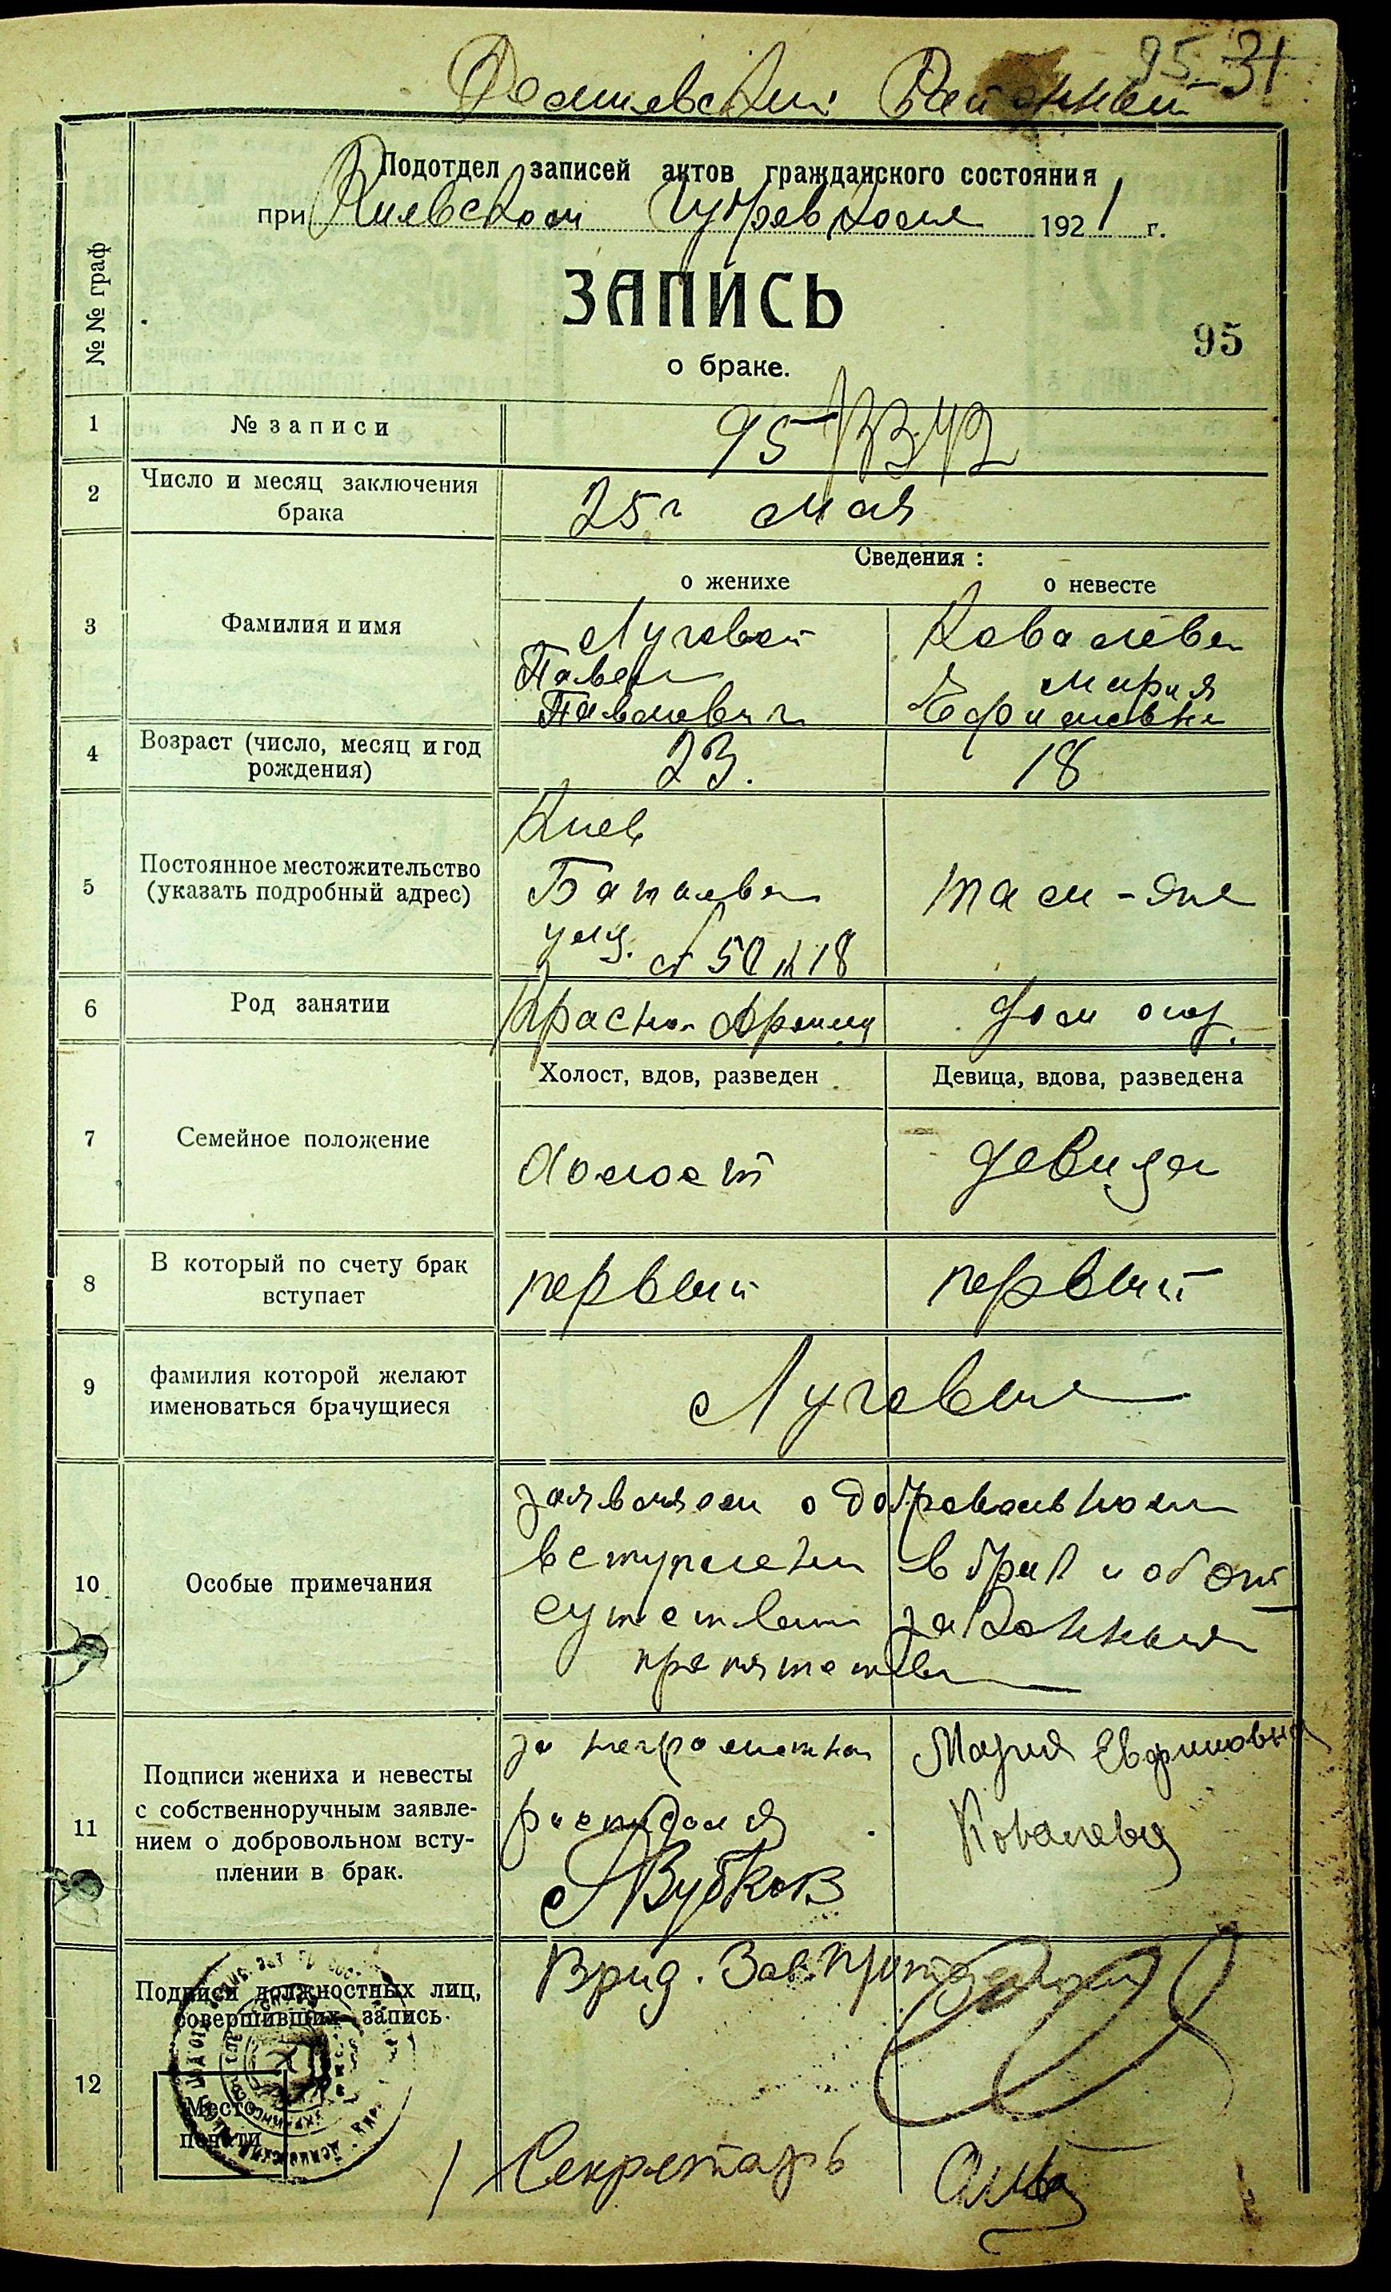 95-31
Районный
Подотдел записей актов гражданского состояния
при Киевском Губревкоме 1921 г.
№ № граф
ЗАПИСЬ
95
о браке.
1 № записи 95
2 Число и месяц заключения
брака
25го мая
Сведения :
о женихе о невесте
3 Фамилия и имя
Луговой Ковалева
Павел Мария
Павлович Ефимовна
4 Возраст (число, месяц и год
рождения)
23. 18
5 Постоянное местожительство
(указать подробный адрес)
Киев
Батыева
ул. 18
там-же
6 Род занятии Красно Армеец дом
7 Семейное положение
Холост, вдов, разведен Девица, вдова, разведена
холост девица
8 В который по счету брак
вступает
первый первый
9 фамилия которой желают
именоваться брачущиеся
Луговые
10 Особые примечания
заявляем о добровольном
вступлении в брак и об от
сутствии законных
препятствий
11 Подписи жениха и невесты
с собственноручным заявле-
нием о добровольном всту-
плении в брак.
за неграмотного
расписался
Зубков
Мария Евфимовна
Ковалева
12 Подписи должностных лиц,
совершивших запись.
Место
печати
Врид. Зав.
Секретарь